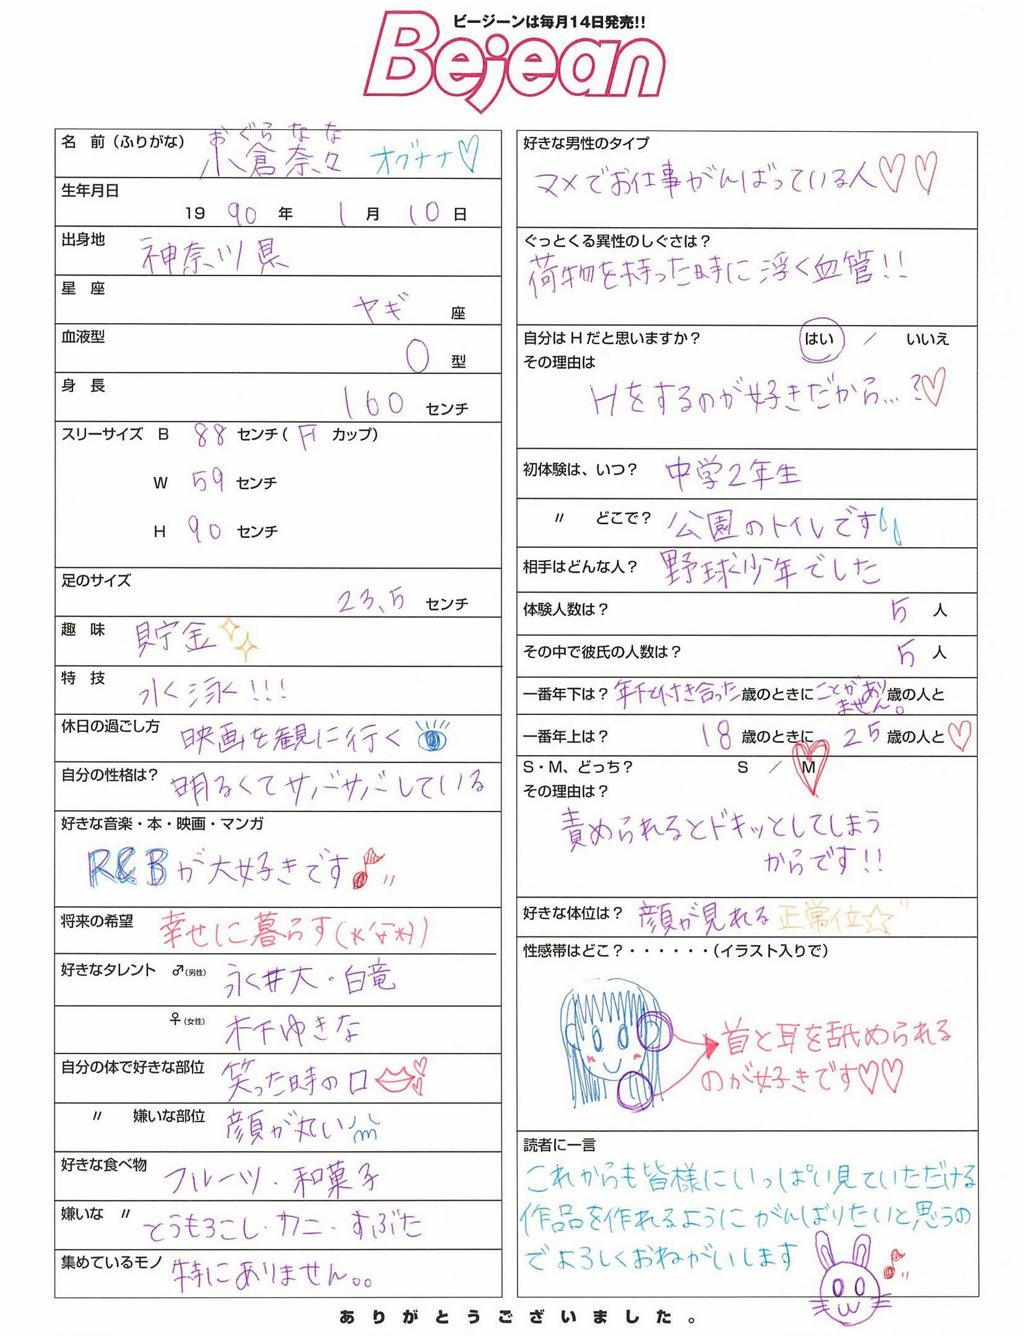 ビージーンは毎月14日発売!!
Bejean
名 前(ふりがな) おぐらなな
小倉奈々 オグナナ♡
生年月日
19 90 年 1 月 10 日
出身地 神奈川県
星 座 ヤギ 座
血液型 O 型
身 長 160 センチ
スリーサイズ B 88 センチ( F カップ)
W 59 センチ
H 90 センチ
足のサイズ 23.5 センチ
趣 味 貯金
特 技 水泳!!!
休日の過ごし方 映画を観に行く
自分の性格は? 明るくてサバサバしている
好きな音楽・本・映画・マンガ
R&Bが大好きです♪
将来の希望 幸せに暮らす
好きなタレント ♂(男性) 永井大・白竜
♀(女性) 木下ゆきな
自分の体で好きな部位 笑った時の口
〃 嫌いな部位 顔が丸い
好きな食べ物 フルーツ・和菓子
嫌いな 〃 とうもろこし・カニ・すぶた
集めているモノ 特にありません。。
好きな男性のタイプ
マメでお仕事がんばっている人♡♡
ぐっとくる異性のしぐさは?
荷物を持った時に浮く血管!!
自分はHだと思いますか? はい / いいえ
その理由は
Hをするのが好きだから…?♡
体験人数は? 5 人
その中で彼氏の人数は? 5 人
一番年下は? 年下と付き合った歳のときにことがありません。歳の人と
一番年上は? 18 歳のときに 25 歳の人と♡
S・M、どっち? S / M
その理由は?
責められるとドキッとしてしまう
からです!!
好きな体位は? 顔が見れる 正常位☆
性感帯はどこ?・・・・・・(イラスト入りで)
首と耳を舐められる
のが好きです♡♡
読者に一言
これからも皆様にいっぱい見ていただける
作品を作れるようにがんばりたいと思うの
でよろしくおねがいします
ありがとうございました。